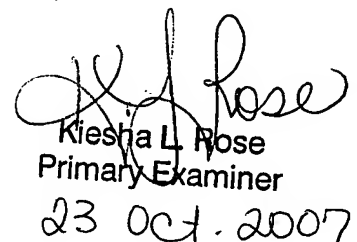 KL Rose
Kiesha L. Rose
Primary Examiner
23 Oct. 2007